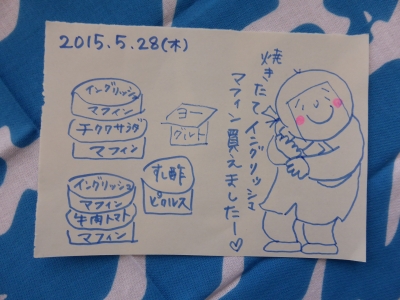 2015.5.28(木)
イングリッシュ
マフィン
チクワサラダ
マフィン
ヨー
グルト
イングリッシュ
マフィン
牛肉トマト
マフィン
すし酢
ピクルス
焼きたてイングリッシュ
マフィン買えましたー♡